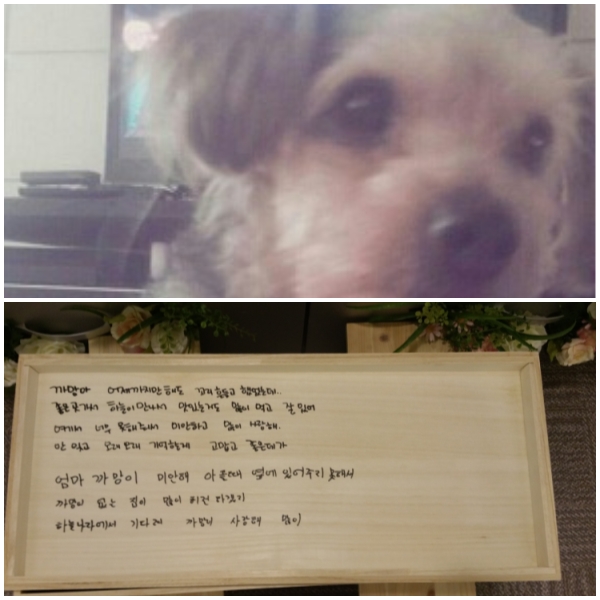 까망아 어제까지만해도 꼬리 흔들고 했었는데..
좋은곳가서 하늘이만나서 맛있는거도 많이 먹고 잘 있어
너무 못해줘서 미안하고 많이 사랑해.
안 잊고 오래오래 기억할게 고맙고 좋은데가
엄마 까망이 미안해 아플때 옆에 있어주지 못해서
까망이 없는 집이 많이 허전 하겠지
하늘나라에서 기다려 까망아 사랑해 많이